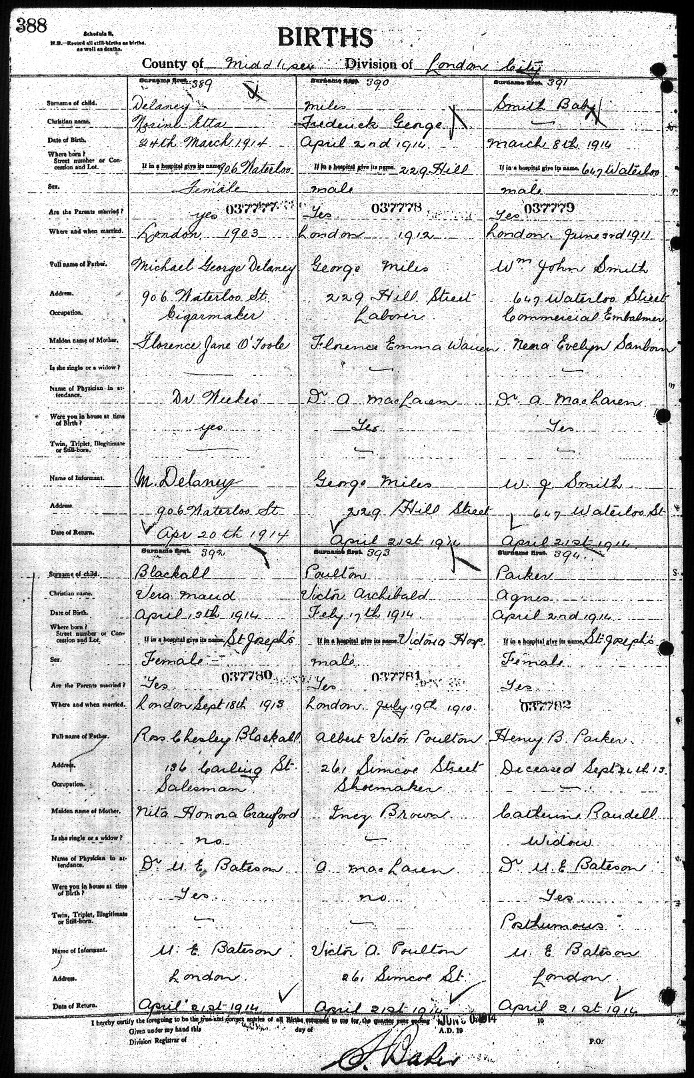 388
Schedule B.
N.B.—Record all still-births as births, as well as deaths.
BIRTHS
County of Middlesex Division of London City
Surname first. 389 Surname first. 390 Surname first. 391
Surname of child. Delaney Miles Smith Baby
Christian name. Etta Frederick George
Date of Birth. 24th March 1914 April 2nd 1914 March 8th 1914
Where born? Street number or Concession and Lot. If in a hospital give its name. 906 Waterloo If in a hospital give its name. 229 Hill If in a hospital give its name. 647 Waterloo
Sex. Female male male
Are the Parents married? yes 037777 Yes 037778 Yes 037779
Where and when married. London 1903 London 1912 London. June 3rd 1911
Full name of Father. Michael George Delaney George Miles Wm John Smith
Address. 906 Waterloo St. 229 Hill Street 647 Waterloo Street
Occupation. Cigarmaker Laborer Commercial Embalmer
Maiden name of Mother. Florence Jane O'Toole Florence Emma Evelyn Sanborn
Is she single or a widow? — — —
Name of Physician in attendance. Dr Weekes Dr A MacLaren Dr A MacLaren
Were you in house at time of Birth? yes Yes Yes
Twin, Triplet, Illegitimate or Still-born. — — —
Name of Informant. M. Delaney George Miles W. J Smith
Address 906 Waterloo St. 229 Hill Street 647 Waterloo St
Date of Return. Apr 20th 1914 April 21st 1914 April 21st 1914
Surname first. 392 Surname first. 393 Surname first. 394
Surname of child. Blackall Poulton Parker
Christian name. Vera Maud Victor Archibald Agnes
Date of Birth. April 13th 1914 Feby 17th 1914 April 2nd 1914
Where born? Street number or Concession and Lot. If in a hospital give its name. St Joseph's If in a hospital give its name. Victoria Hosp. If in a hospital give its name. St. Joseph's
Sex. Female male Female
Are the Parents married? Yes 037780 Yes 037781 Yes
Where and when married. London Sept 18th 1913 London July 19th 1910. 037782
Full name of Father. Ross Chesley Blackall Albert Victor Poulton Henry B. Parker
Address. 136 Carling St. 261 Simcoe Street Deceased Sept 24th 13.
Occupation. Salesman Shoemaker —
Maiden name of Mother. Nita Honora Crawford Brown Catherine Randell
Is she single or a widow? no — Widow
Name of Physician in attendance. Dr U. E. Bateson A MacLaren Dr U E Bateson
Were you in house at time of Birth? Yes no Yes
Twin, Triplet, Illegitimate or Still-born. — — Posthumous
Name of Informant. U. E Bateson Victor A. Poulton U E Bateson
Address. London. 261 Simcoe St. London
Date of Return. April 21st 1914 April 21st 1914 April 21st 1914
I hereby certify the foregoing to be the true and correct entries of all Births returned to me for the quarter ending JUN 1914 19
Given under my hand this day of A.D. 19
Division Registrar of P.O.
Baker